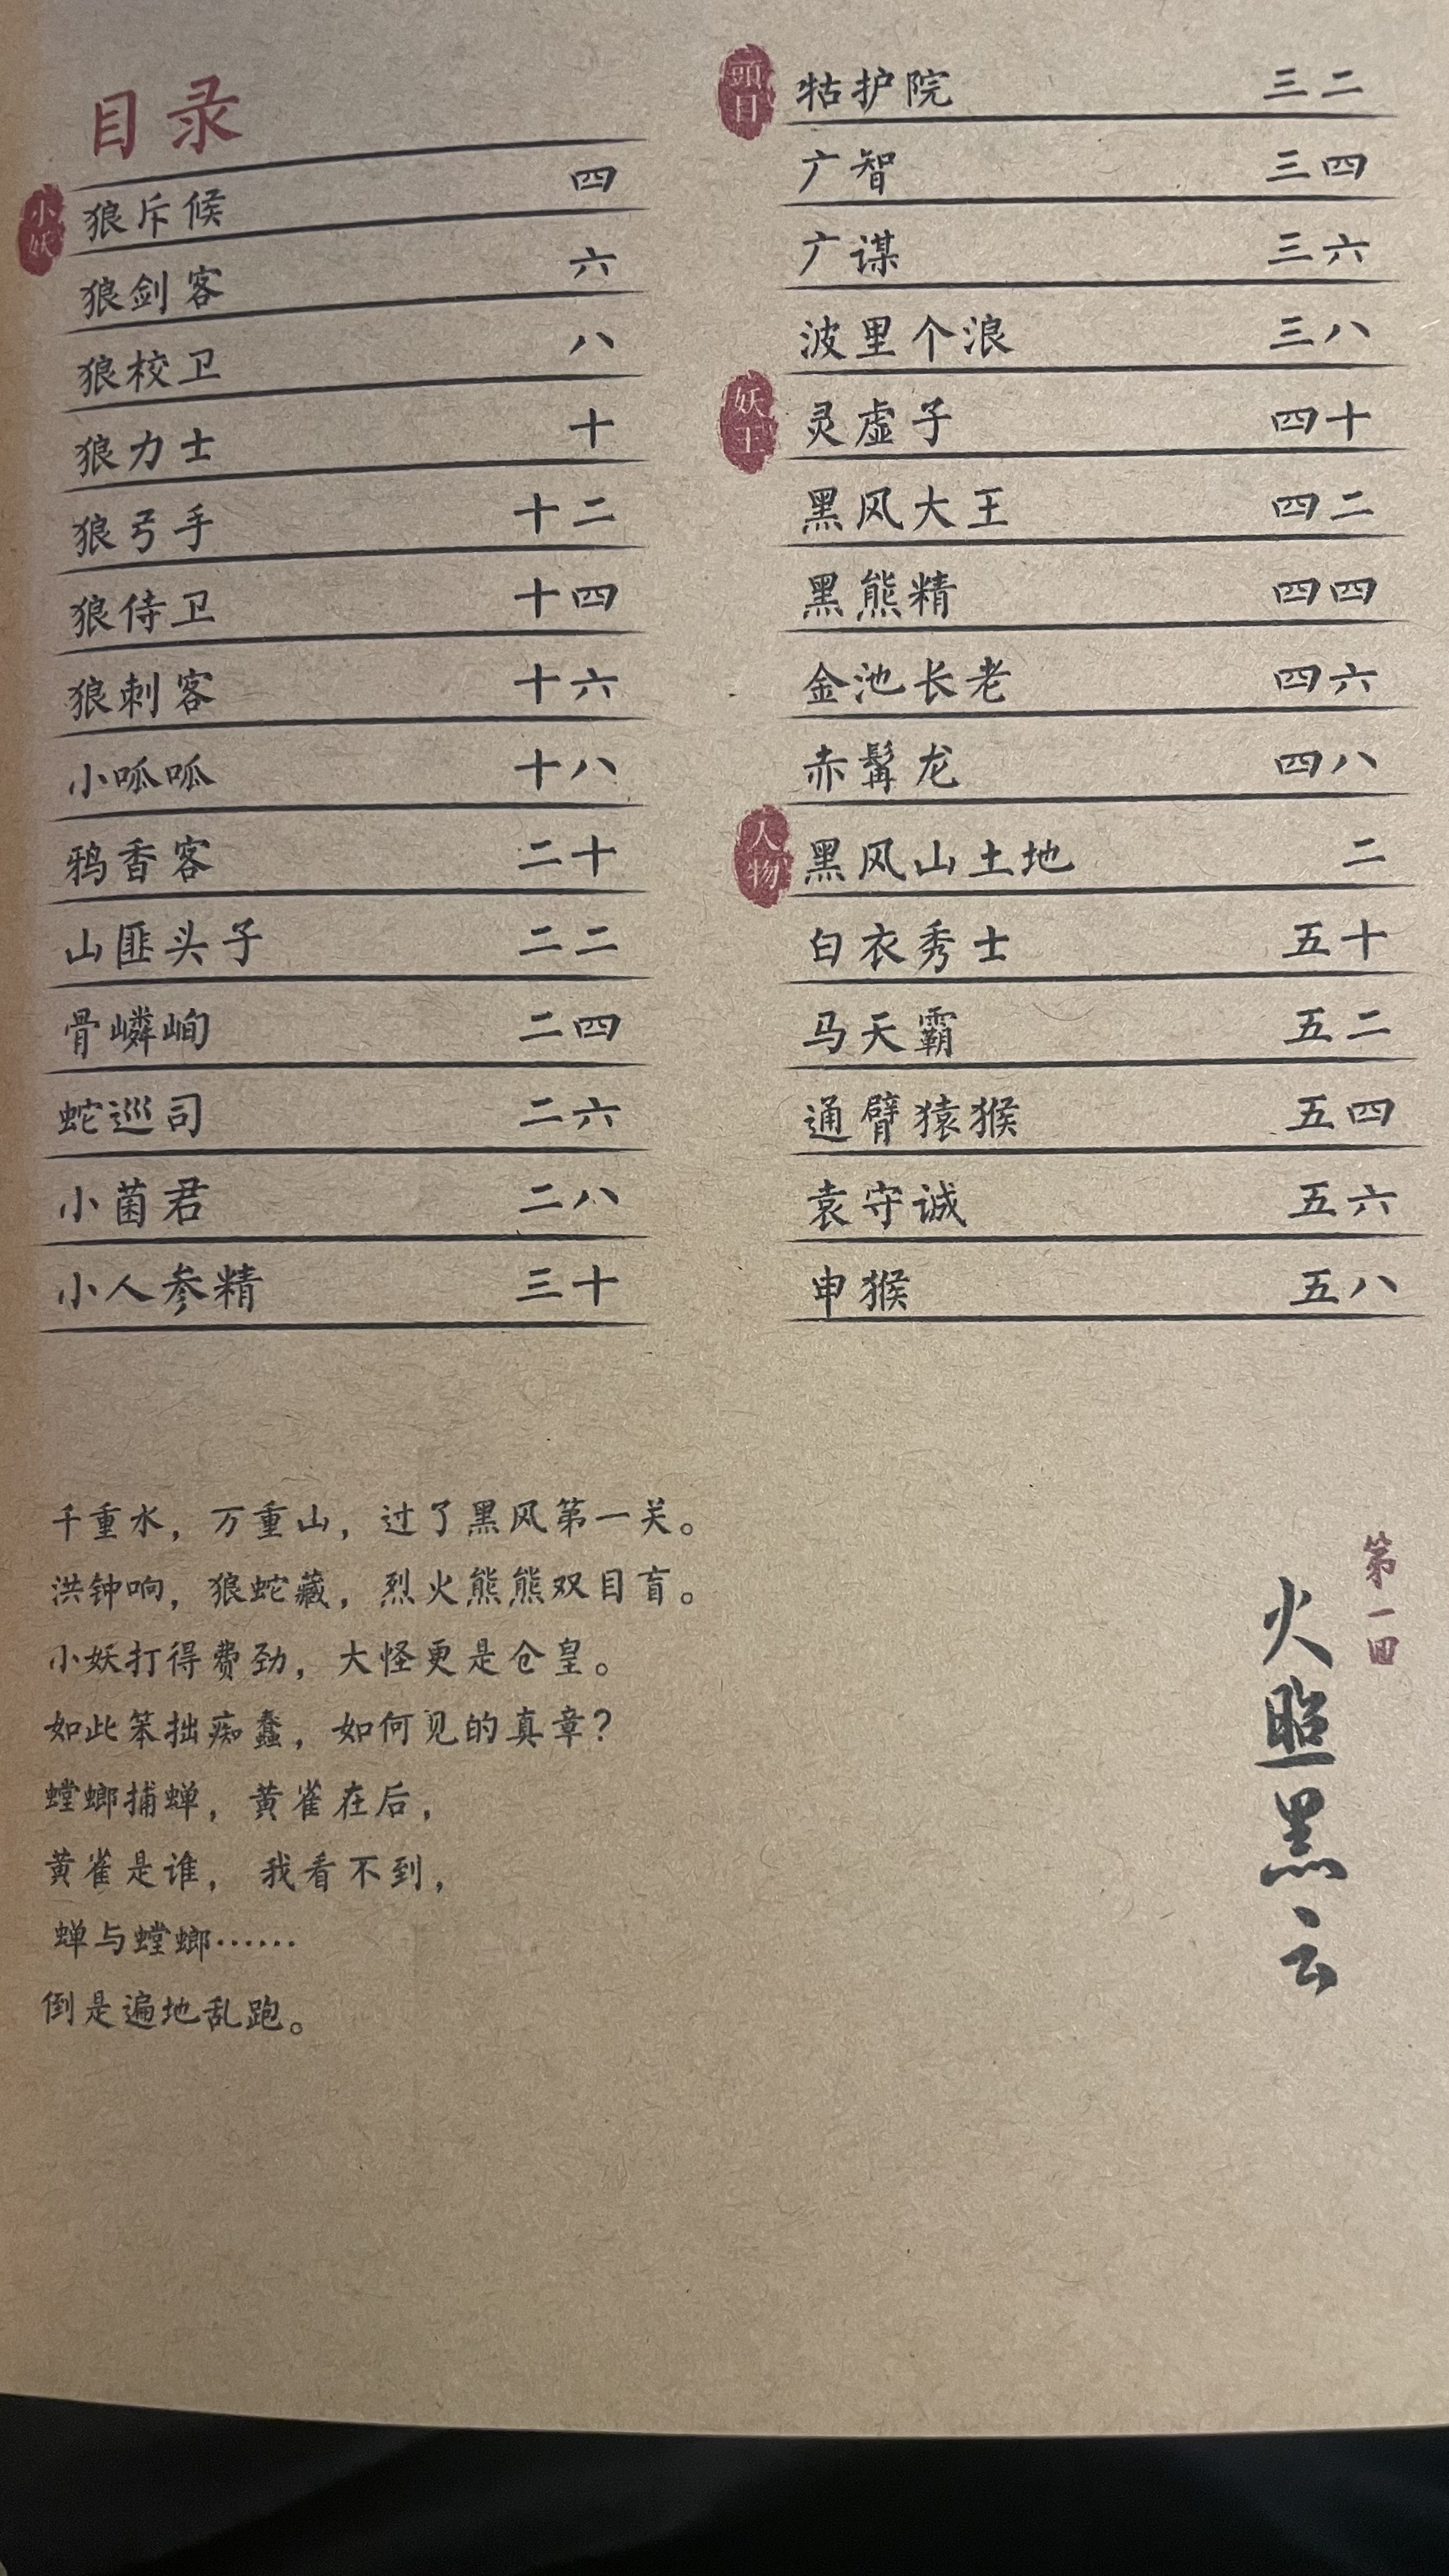 目录
小妖
狼斥候 四
狼剑客 六
狼校卫 八
狼力士 十
狼弓手 十二
狼侍卫 十四
狼刺客 十六
小呱呱 十八
鸦香客 二十
山匪头子 二二
骨嶙峋 二四
蛇巡司 二六
小菌君 二八
小人参精 三十
頭目
牯护院 三二
广智 三四
广谋 三六
波里个浪 三八
妖王
灵虚子 四十
黑风大王 四二
黑熊精 四四
金池长老 四六
赤髯龙 四八
人物
黑风山土地 二
白衣秀士 五十
马天霸 五二
通臂猿猴 五四
袁守诚 五六
申猴 五八
千重水，万重山，过了黑风第一关。
洪钟响，狼蛇藏，烈火熊熊双目盲。
小妖打得费劲，大怪更是仓皇。
如此笨拙痴蠢，如何见的真章？
螳螂捕蝉，黄雀在后，
黄雀是谁，我看不到，
蝉与螳螂……
倒是遍地乱跑。
第一回
火照黑云